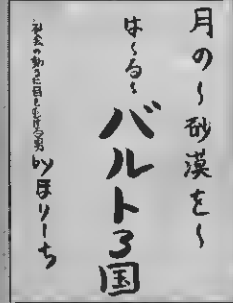 月の〜砂漠を〜
は〜る〜
バルト3国
社会の動きに目をむける男
byほりーち